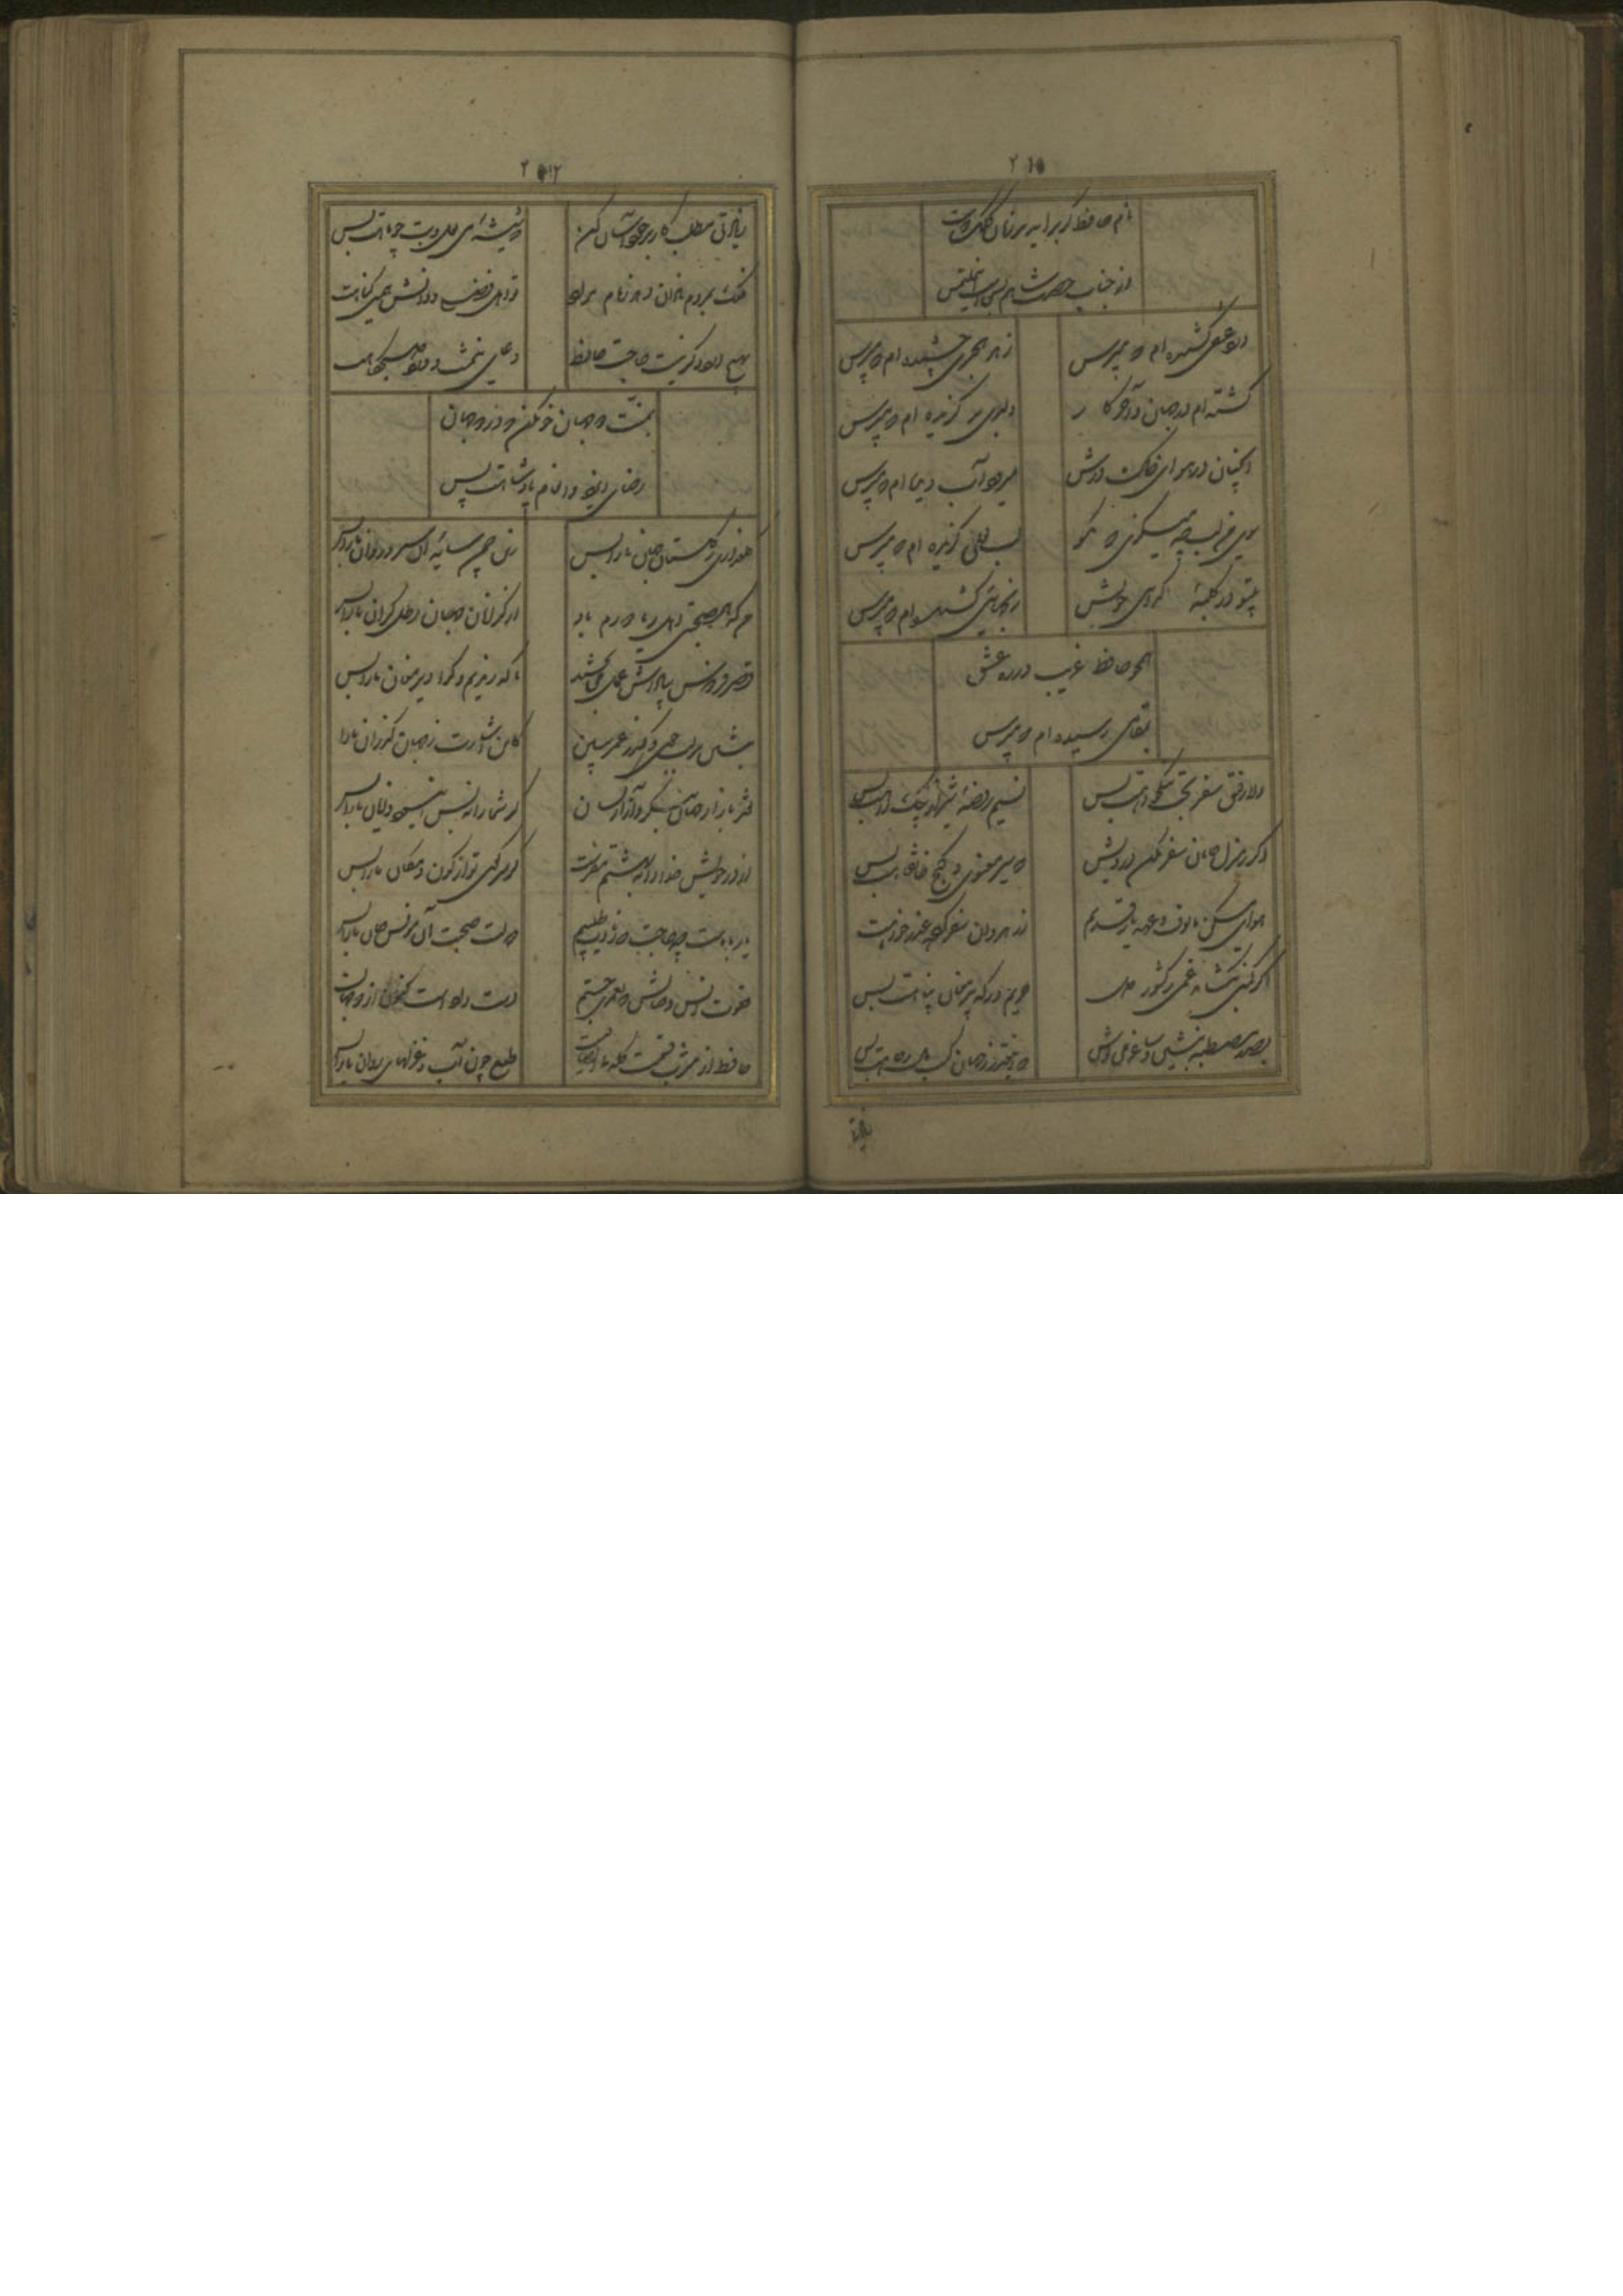 ۲۱۵
نام حافظ گر برآید بر زبان کلک دوست
از جناب حضرت شاهم بس است این ملتمس
درد عشقی کشیده ام که مپرس
زهر هجری چشیده ام که مپرس
گشته ام در جهان و آخر کار
دلبری برگزیده ام که مپرس
آنچنان در هوای خاک درش
میرود آب دیده ام که مپرس
سوی من لب چه میگزی که مگو
لب لعلی گزیده ام که مپرس
بیتو در کلبهٔ گدائی خویش
رنجهائی کشیده ام که مپرس
همچو حافظ غریب در ره عشق
بمقامی رسیده ام که مپرس
دلا رفیق سفر بخت نیکخواهت بس
نسیم روضهٔ شیراز پیک راهت بس
دگر ز منزل جانان سفر مکن درویش
که سیر معنوی و کنج خانقاهت بس
هوای مسکن مألوف و عهد یار قدیم
ز رهروان سفر کرده عذرخواهت بس
اگر کمین بگشاید غمی ز کشور دل
حریم درگه پیر مغان پناهت بس
بصدر مصطبه بنشین و ساغر می نوش
که اینقدر ز جهان کسب مال و جاهت بس
۲۱۲
زیادتی مطلب کار بر خود آسان کن
که شیشهٔ می لعل و بت چو ماهت بس
فلک بمردم نادان دهد زمام مراد
تو اهل فضلی و دانش همین گناهت
بهیچ ورد دگر نیست حاجت حافظ
دعای نیمشب و درد صبحگاهت
بمنت دو جهان خو مکن که در دو جهان
رضای ایزد و انعام پادشاهت بس
گلعذاری ز گلستان جهان ما را بس
زین چمن سایهٔ آن سرو روان ما را بس
من که همصحبتی اهل ریا دورم باد
از گرانان جهان رطل گران ما را بس
قصر فردوس بپاداش عمل میبخشند
ما که رندیم و گدا دیر مغان ما را بس
بنشین بر لب جوی و گذر عمر ببین
کاین اشارت ز جهان گذران ما را
نقد بازار جهان بنگر و آزار جهان
گر شما را نه بس این سود و زیان ما را بس
از در خویش خدا را به بهشتم مفرست
که سر کوی تو از کون و مکان ما را بس
یار با ماست چه حاجت که زیادت طلبیم
دولت صحبت آن مونس جان ما را بس
حافظ از مشرب قسمت گله نا انصافیست
طبع چون آب و غزلهای روان ما را بس